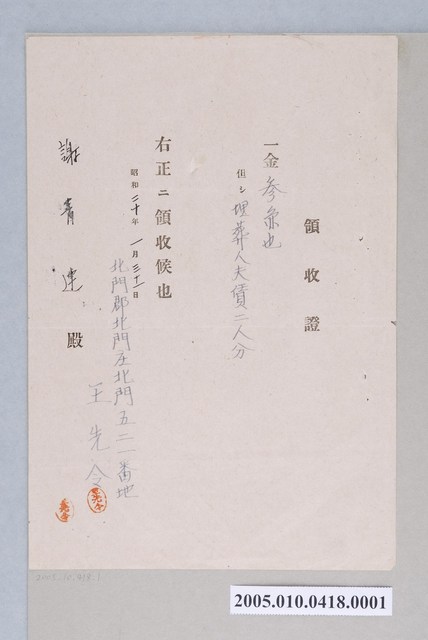 領收證
一金参圓也
但シ埋葬人夫賃二人分
右正ニ領收候也
昭和二十年一月三十一日
北門郡北門庄北門五二一番地
王先令
謝青連殿
2005.010.0418.0001